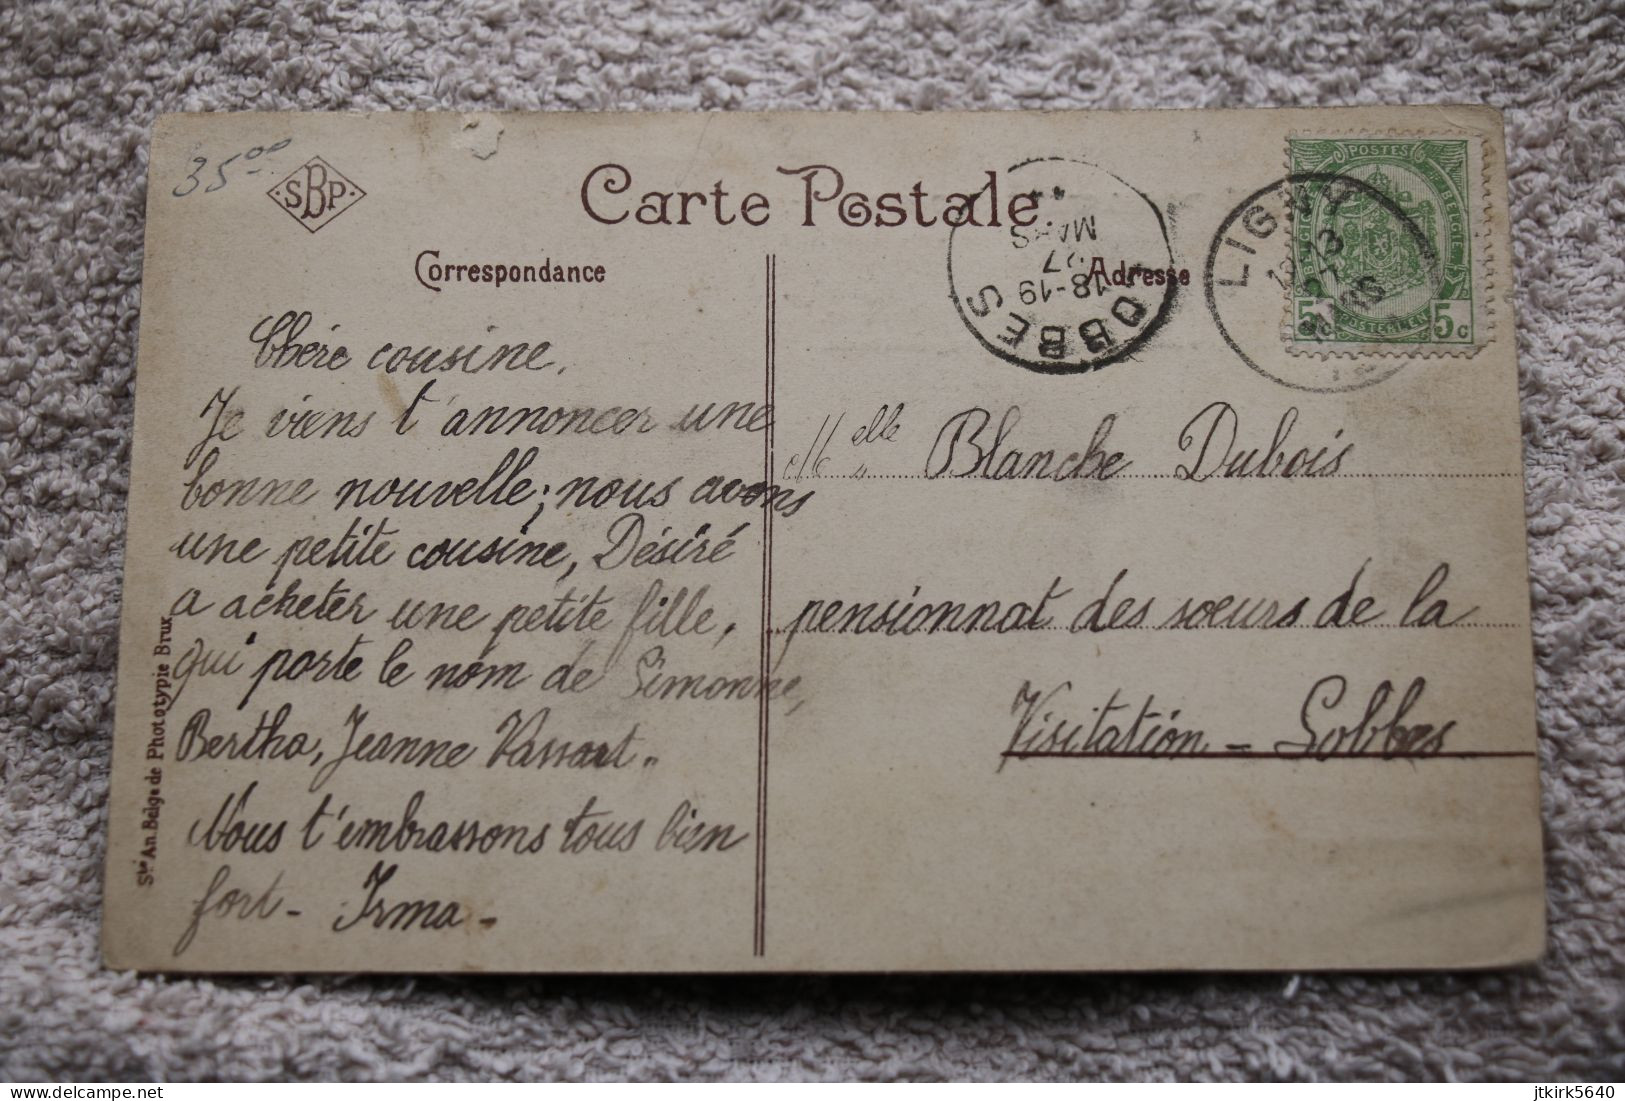 35.00
SBP
Carte Postale
Correspondance
Adresse
LOBBES
18-19
27
MARS
LIGNY
13
MARS
POSTES
BELGIQUE
BELGIE
POSTERIJEN
5c 5c
Chère cousine,
Je viens t'annoncer une
bonne nouvelle; nous avons
une petite cousine, Désiré
a acheter une petite fille,
qui porte le nom de Simonne,
Bertha, Jeanne Vassart.
Nous t'embrassons tous bien
fort - Irma -
Melle Blanche Dubois
pensionnat des soeurs de la
Visitation - Lobbes
Sté An. Belge de Phototypie Brux
delcampe.net
jtkirk5640